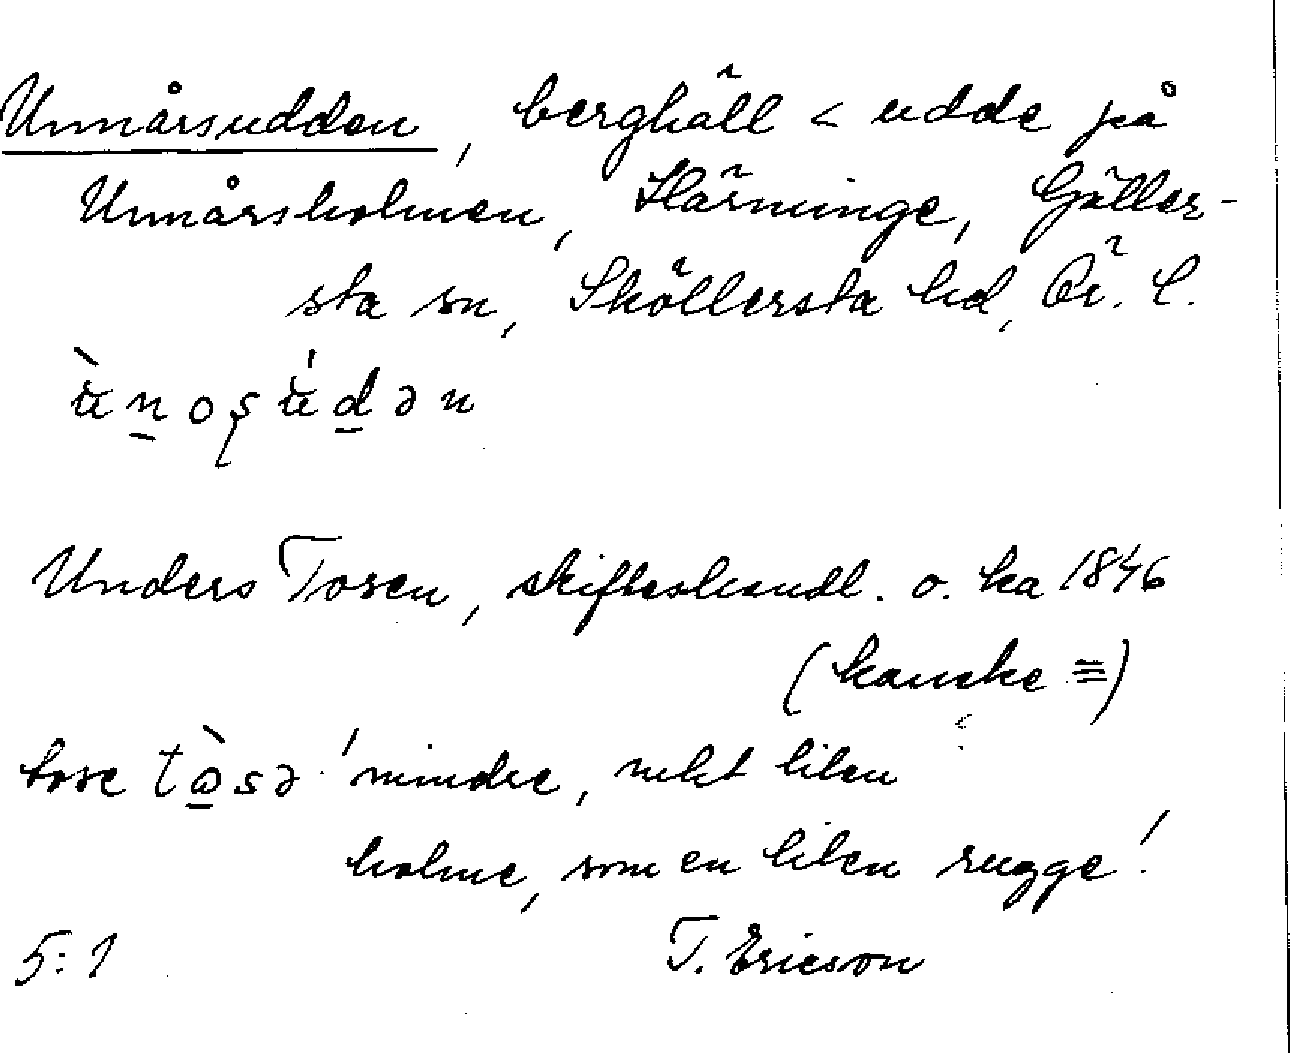 Unnårsudden, berghäll < udde på
Unnårsholmen, Härminge, Gäller-
sta sn, Sköllersta hd, Ör. l.
ùnoșúdən
Unders Tosen, skifteshandl. o. ka 1846
(kanske ≡)
tose tòsə 'mindre, rukt liten
holme, som en liten rugge'
5:1 T. Ericson